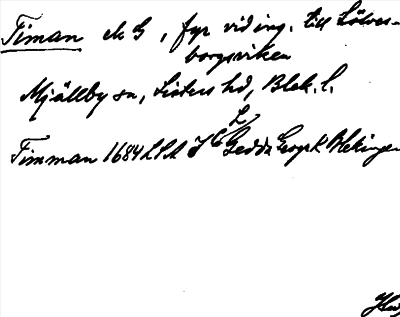 Timan ek G, fyr vid ing. till Sölves-
borgsviken
Mjällby sn, Listers hd, Blek. l.
Timman 1684 LSA Gedda Geogr k Blekinge